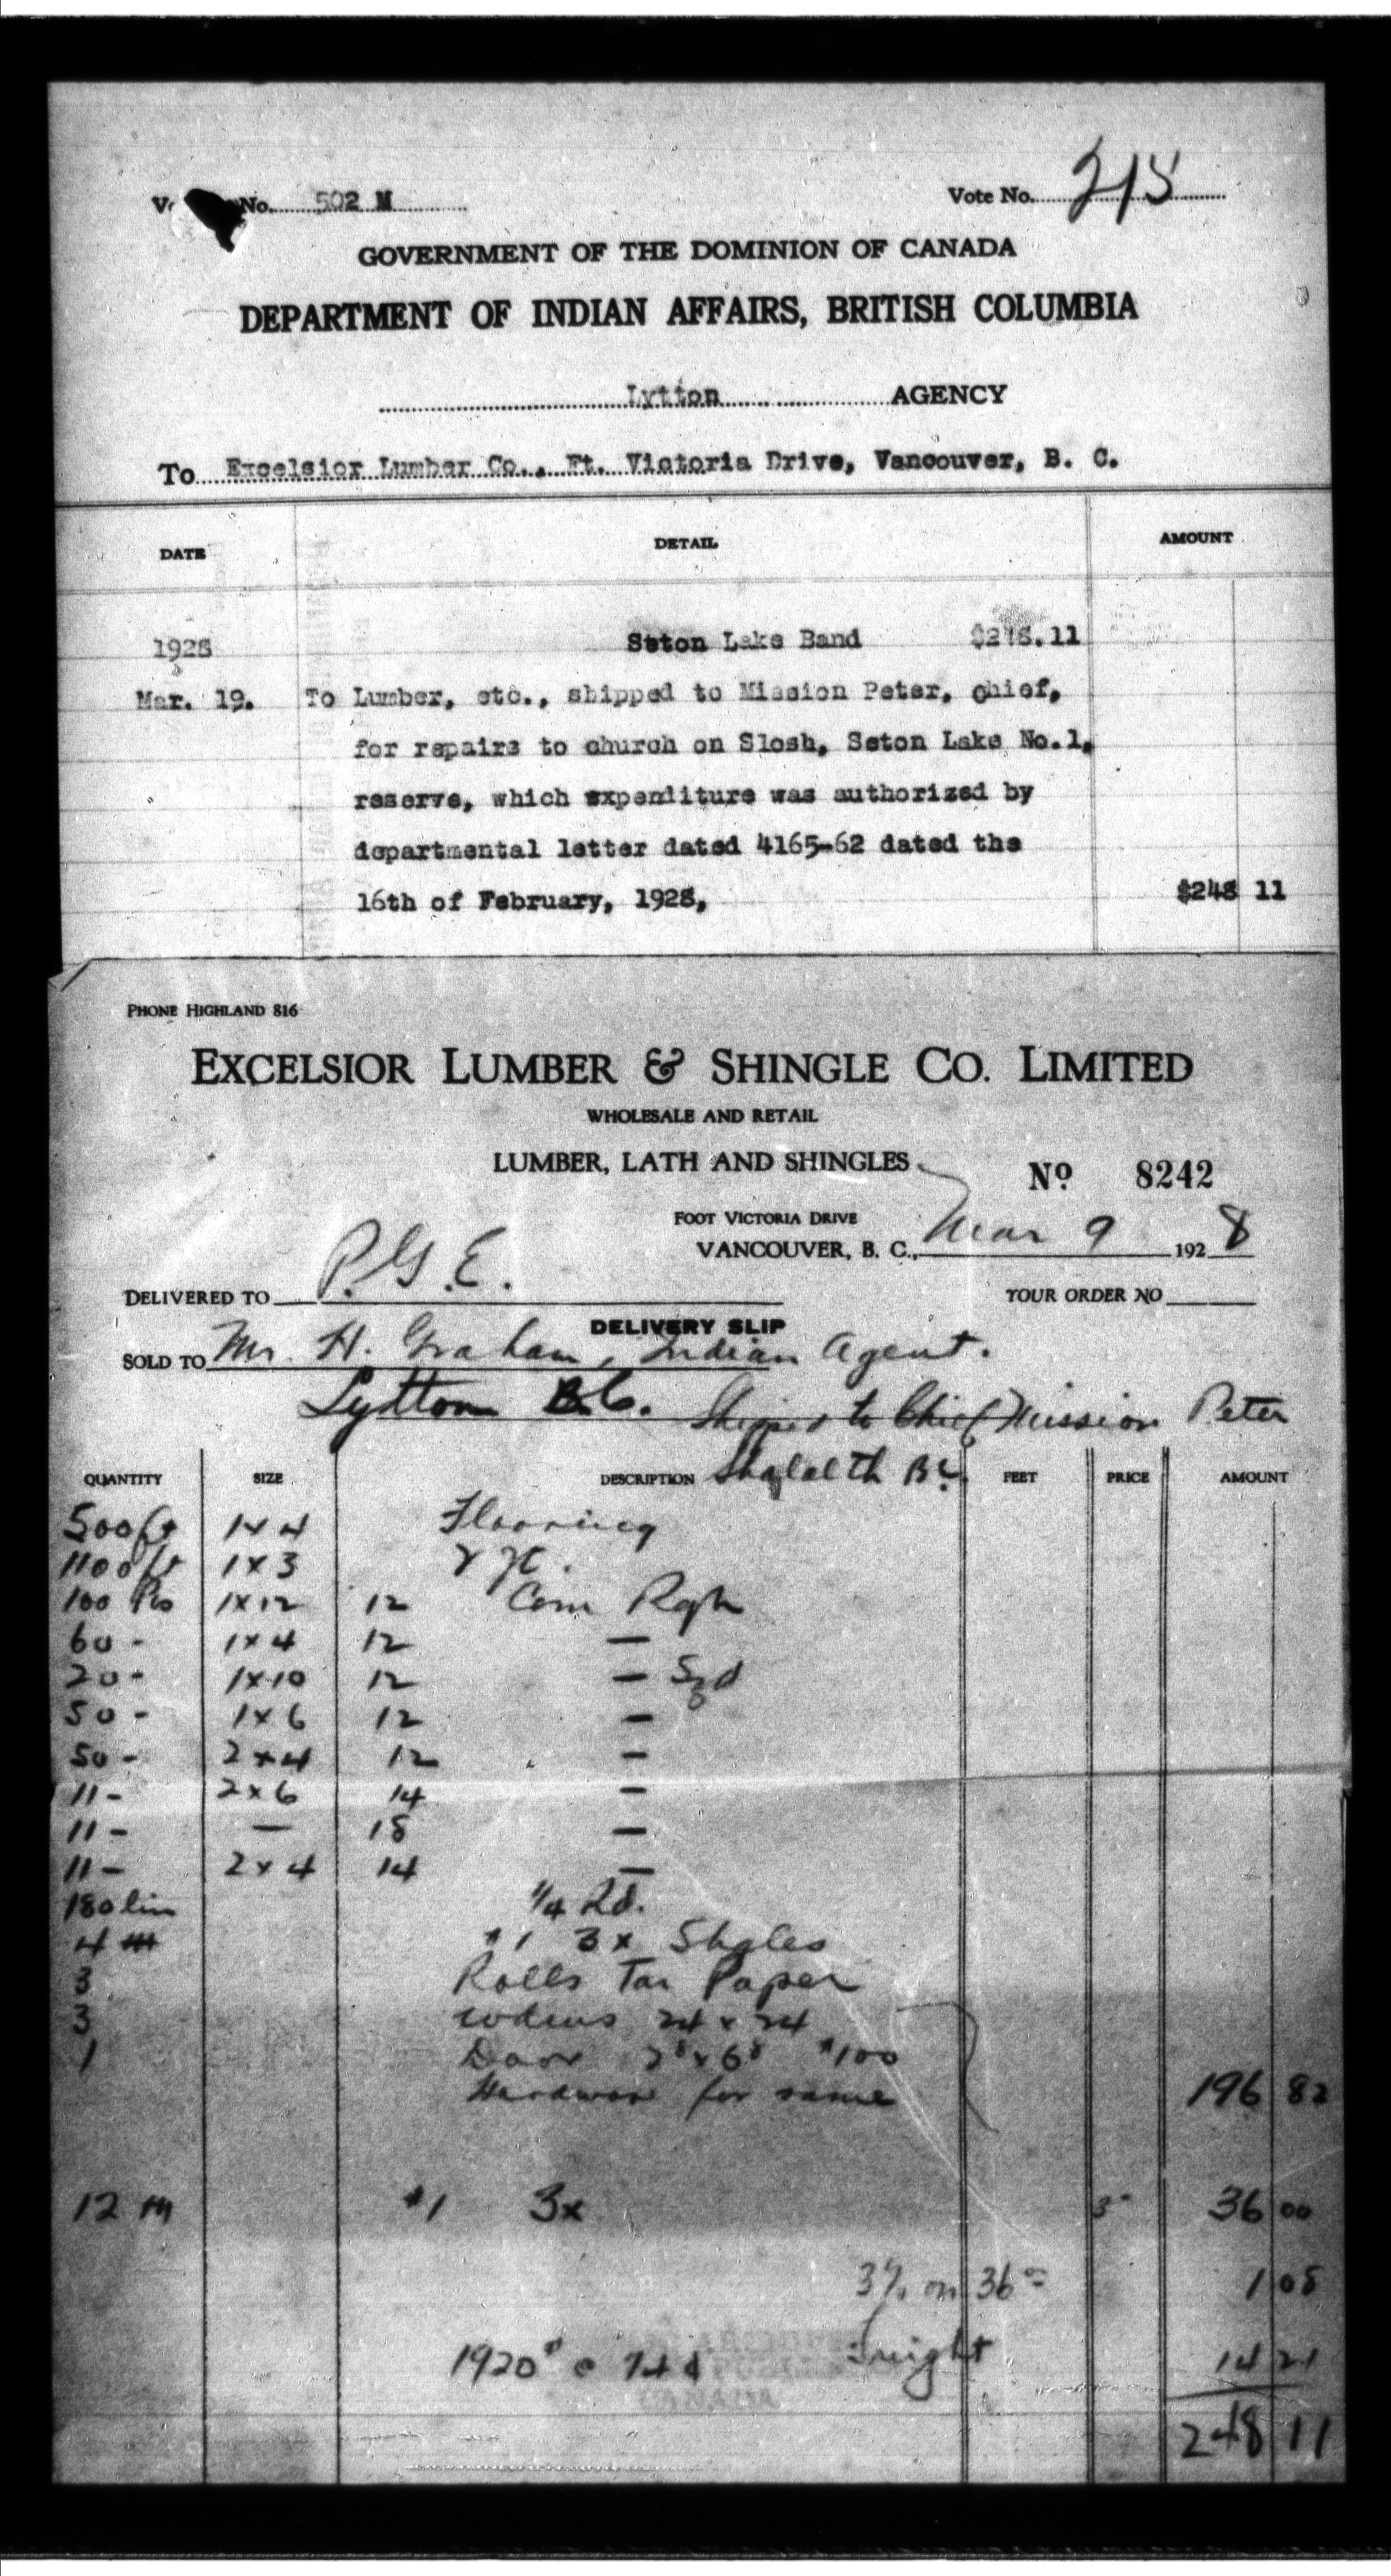 No. 502 M Vote No. 215
GOVERNMENT OF THE DOMINION OF CANADA
DEPARTMENT OF INDIAN AFFAIRS, BRITISH COLUMBIA
Lytton AGENCY
To Excelsior Lumber Co., Ft. Victoria Drive, Vancouver, B. C.
DATE DETAIL AMOUNT
1928 Seton Lake Band $248.11
Mar. 19. To Lumber, etc., shipped to Mission Peter, chief,
for repairs to church on Slosh, Seton Lake No.1,
reserve, which expenditure was authorized by
departmental letter dated 4165-62 dated the
16th of February, 1928, $248 11
PHONE HIGHLAND 816
EXCELSIOR LUMBER & SHINGLE CO. LIMITED
WHOLESALE AND RETAIL
LUMBER, LATH AND SHINGLES
No 8242
FOOT VICTORIA DRIVE
VANCOUVER, B. C., Mar 9 192 8
DELIVERED TO P.G.E. YOUR ORDER NO
DELIVERY SLIP
SOLD TO Mr. H. Graham, Indian Agent.
Lytton B.C. Shipped to Chief Mission Peter
Shalalth B.C.
QUANTITY SIZE DESCRIPTION FEET PRICE AMOUNT
500 ft 1 x 4 Flooring
1100 ft 1 x 3
100 Pcs 1 x 12 12 Com Rgh
60 - 1 x 4 12 —
20 - 1 x 10 12 — Szd
50 - 1 x 6 12 —
50 - 2 x 4 12 —
11 - 2 x 6 14 —
11 - — 18 —
11 - 2 x 4 14 —
180 lin 1/4 Rd.
4 M #1 3x Shgles
3 Rolls Tar Paper
3 Wdws 24 x 24
1 Door 2⁸ x 6⁸ #100
Hardware for same 196 82
12 M #1 3x 3- 36 00
3% on 36 00 1 08
1920# @ 74¢ Freight 14 21
248 11